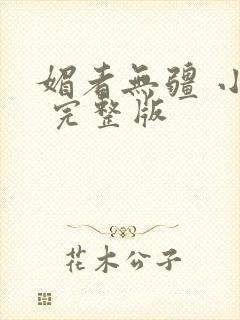 媚者無疆 小
完整版
花木公子